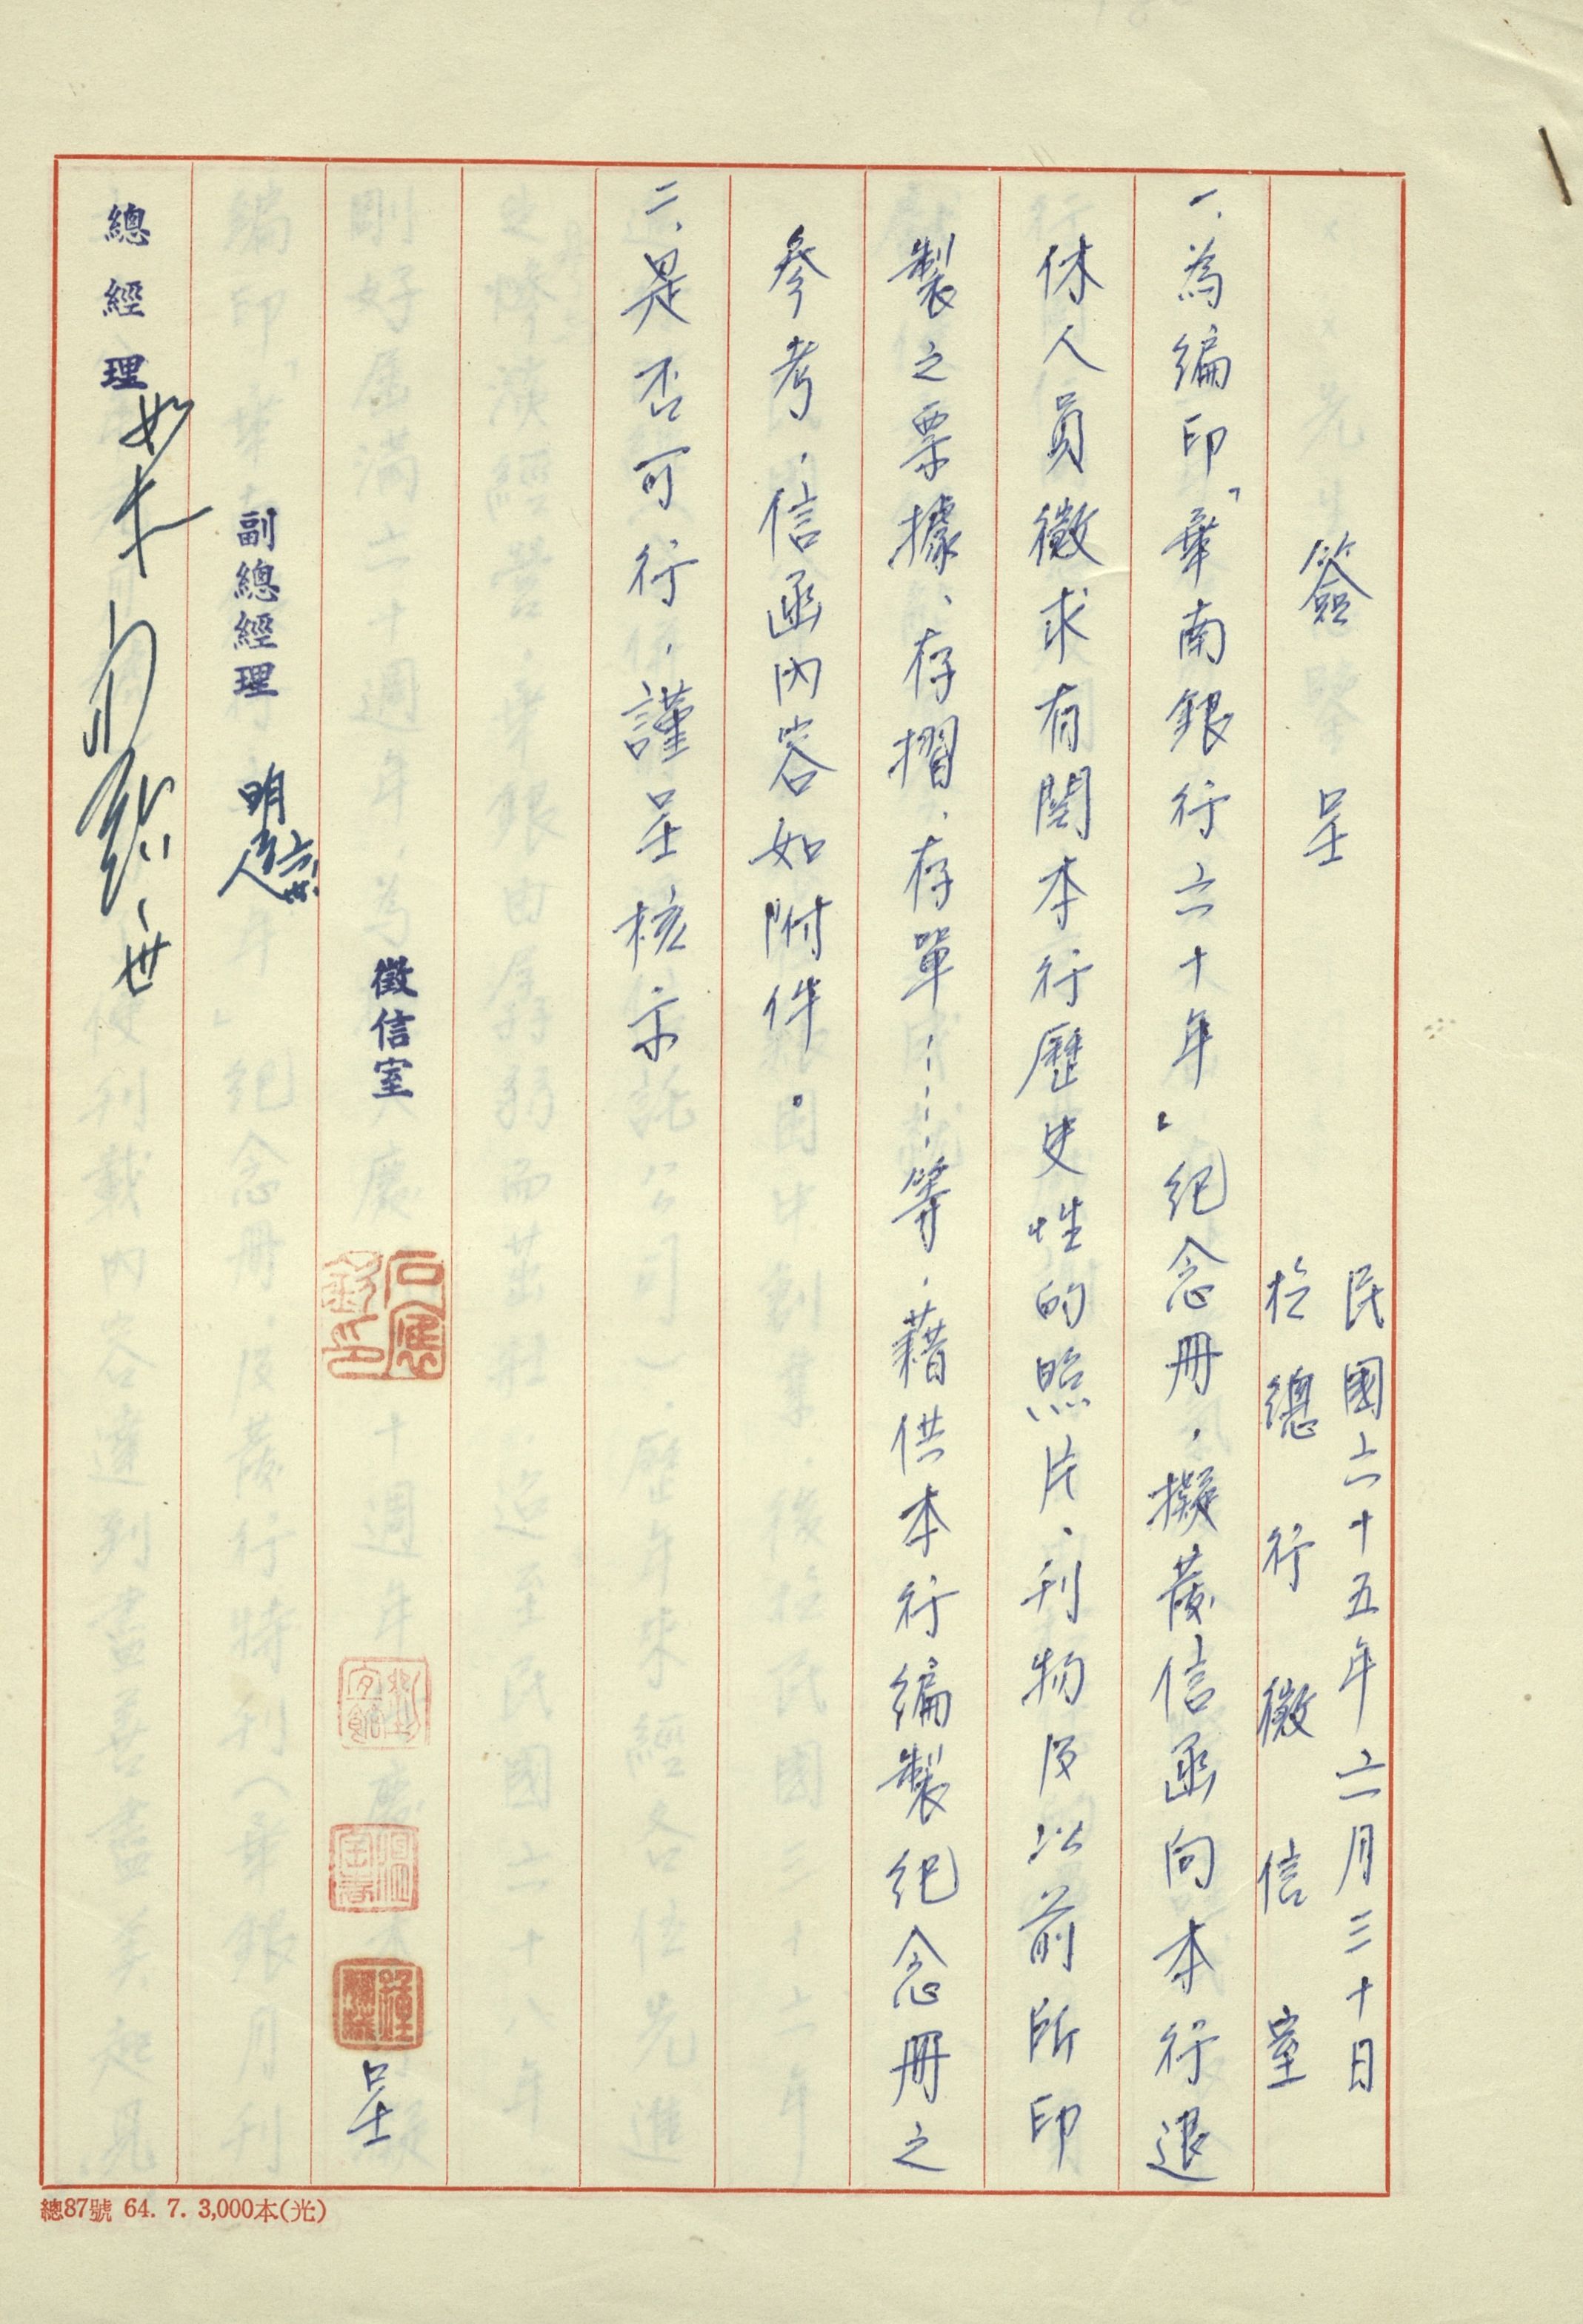 簽呈
民國六十五年六月三十日
於總行徵信室
一、為編印「華南銀行六十年」紀念冊，擬發信函向本行退
休人員徵求有関本行歷史性的照片、刊物及以前所印
製之票據、存摺、存單……等，藉供本行編製紀念冊之
參考，信函內容如附件。
二、是否可行，謹呈核示
徵信室
呈
副總經理
總經理
總87號 64. 7. 3,000本(光)